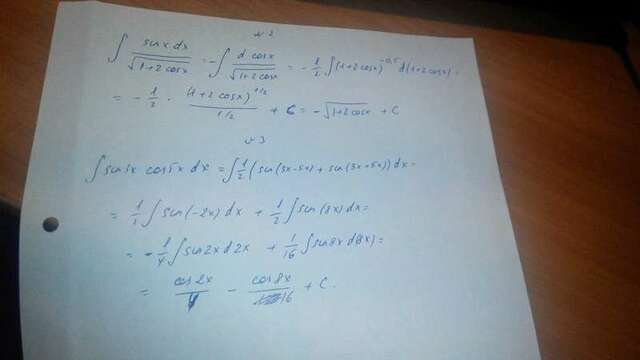 №2
∫ sinx dx / √(1+2cosx) = -∫ d cosx / √(1+2cosx) = -1/2 ∫(1+2cosx)^-0,5 d(1+2cosx) =
= -1/2 · (1+2cosx)^1/2 / 1/2 + C = -√(1+2cosx) + C
№3
∫sin3x cos5x dx = ∫1/2 (sin(3x-5x) + sin(3x+5x))dx =
= 1/2 ∫sin(-2x)dx + 1/2 ∫sin(8x)dx =
= -1/4 ∫sin2x d2x + 1/16 ∫sin8x d8x) =
= cos2x / 4 - cos8x / 16 + C.